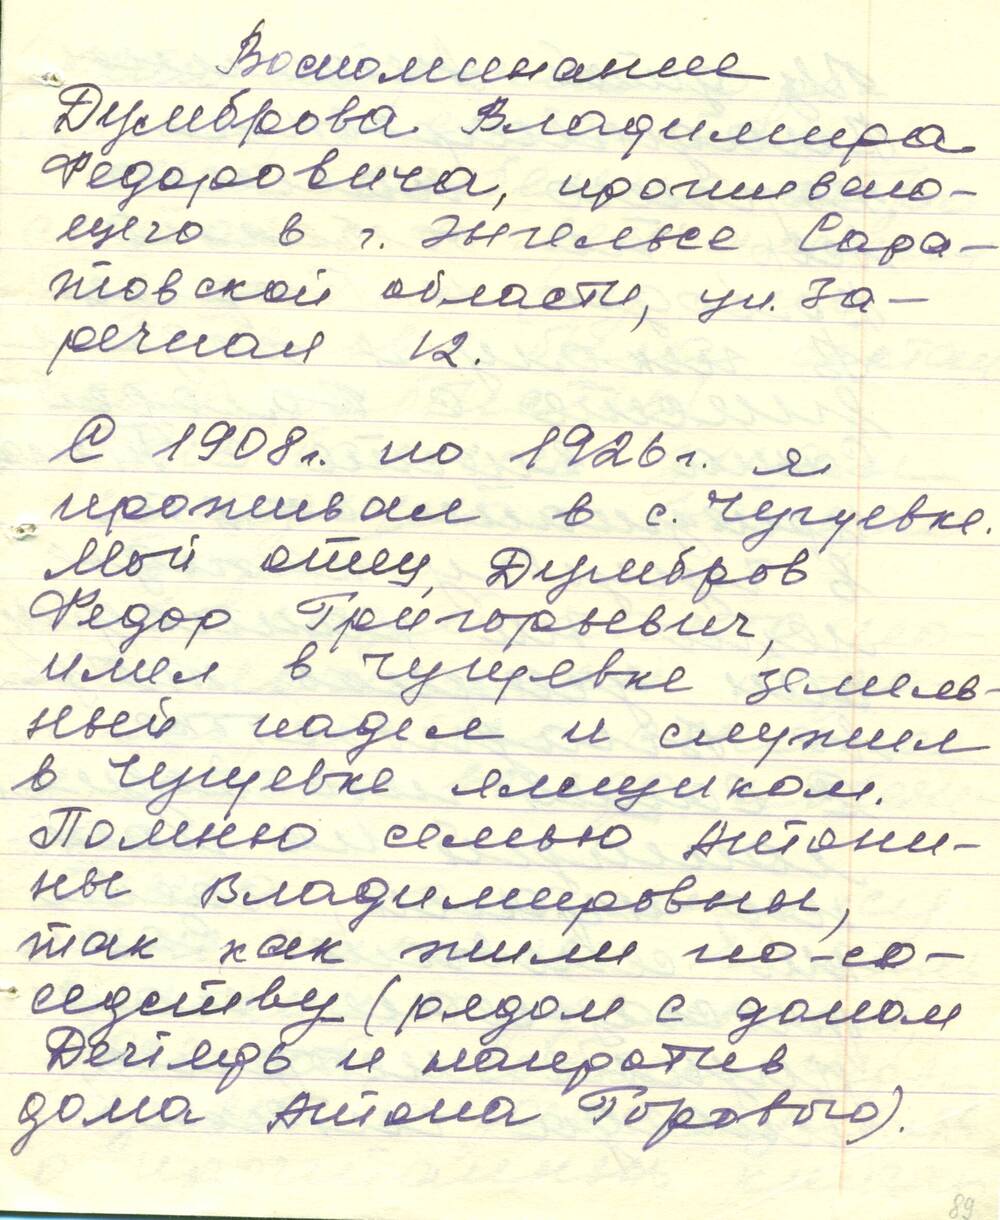 Воспоминание
Думброва Владимира
Федоровича, проживаю-
щего в г. Энгельсе Сара-
товской области, ул. За-
речная 12.
С 1908 г. по 1926 г. я
проживал в с. Чугуевке.
Мой отец, Думбров
Федор Григорьевич,
имел в Чугуевке земель-
ный надел и служил
в Чугуевке ямщиком.
Помню семью Антони-
ны Владимировны,
так как жили по-со-
седству (рядом с домом
и напротив
дома Антона Горового).
89